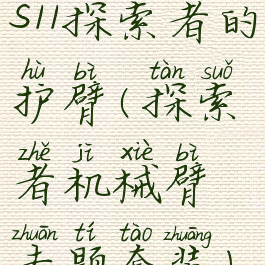 S11探索者的
hù bì tàn suǒ
护臂(探索
zhě jī xiè bì
者机械臂
zhuān tí tào zhuāng
专题套装)